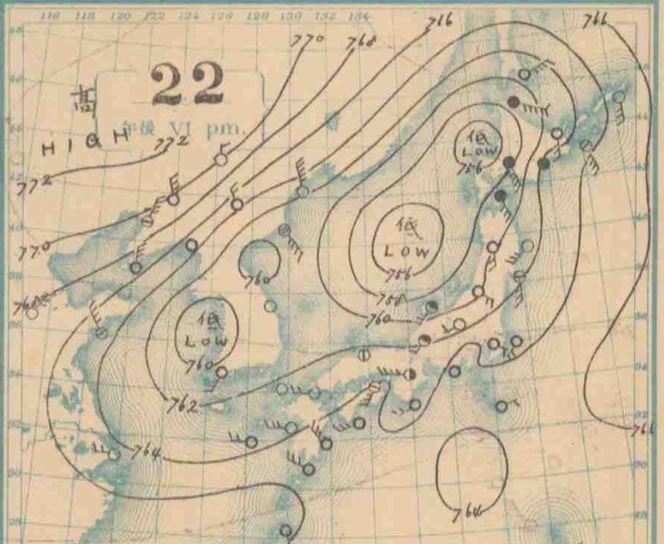 116 118 120 122 124 126 128 130 132 134
770 768 766 766
22
午後 VI pm.
高
HIGH
772
772
低
LOW
756
770
低
LOW
756
758
760
760
768
低
LOW
760
762
764
764